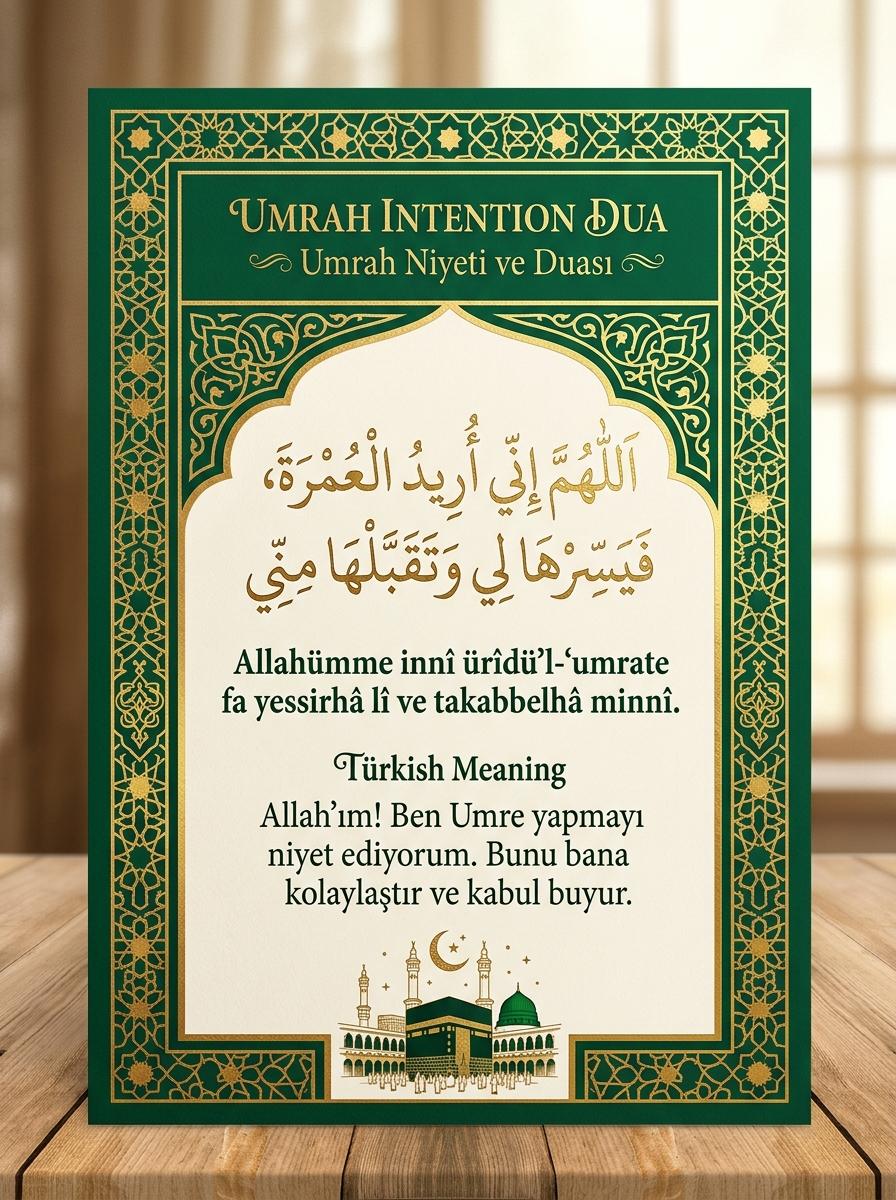 UMRAH INTENTION DUA
Umrah Niyeti ve Duası
اَللّٰهُمَّ إِنِّي أُرِيدُ الْعُمْرَةَ،
فَيَسِّرْهَا لِي وَتَقَبَّلْهَا مِنِّي
Allahümme innî ürîdü’l-‘umrate
fa yessirhâ lî ve takabbelhâ minnî.
Türkish Meaning
Allah’ım! Ben Umre yapmayı
niyet ediyorum. Bunu bana
kolaylaştır ve kabul buyur.